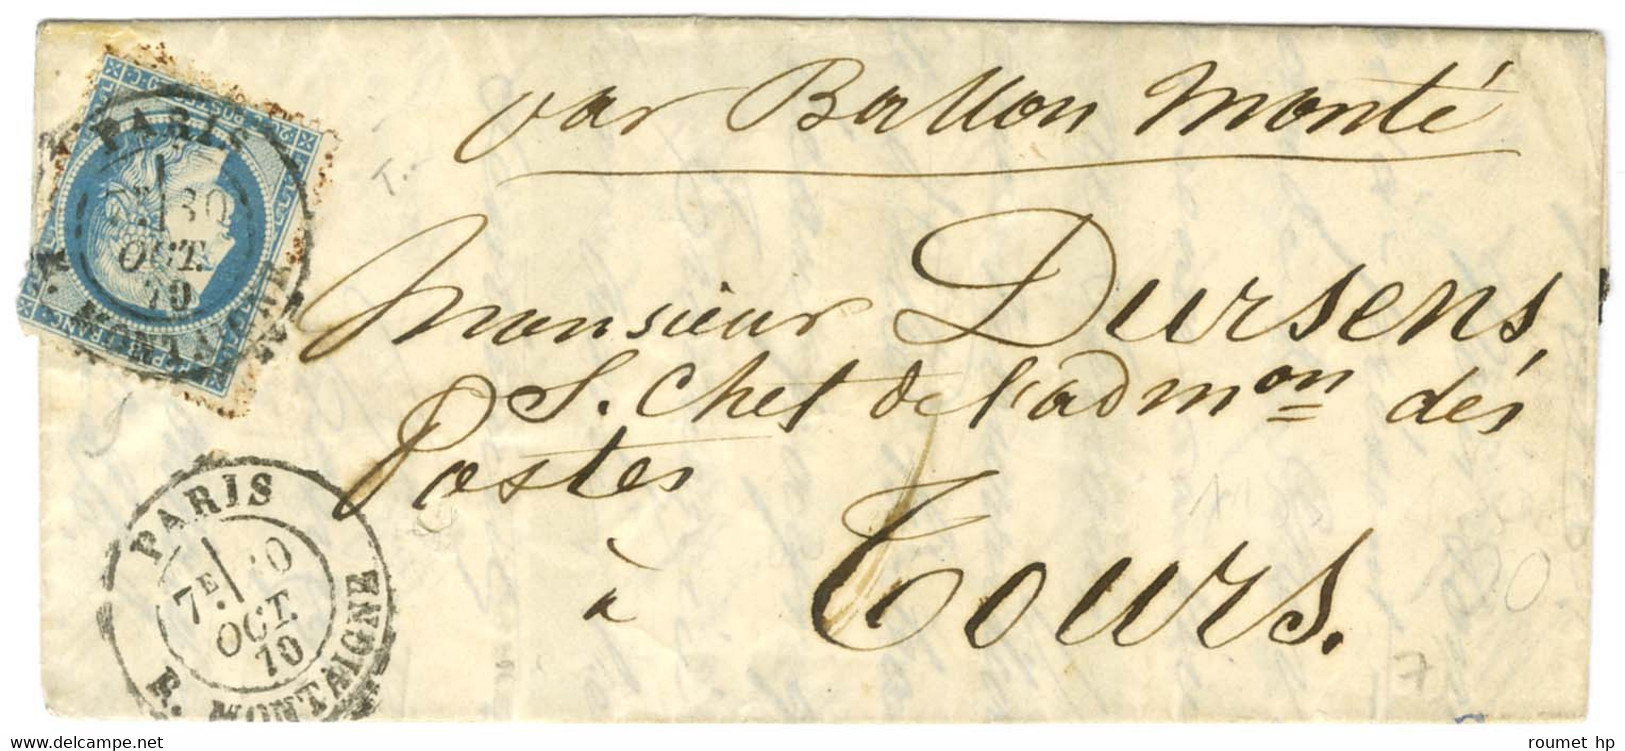 par Ballon Monté
PARIS
30
OCT.
70
Monsieur Dursens,
S. Chef de l'admon dés
Postes
à Tours.
PARIS
7E
OCT.
70
R. MONTAIGNE
7
www.delcampe.net
roumet hp